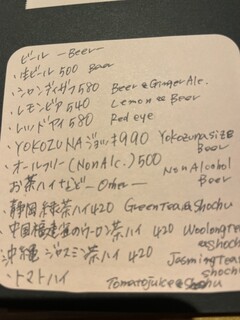 ビール —Beer—
・生ビール 500 Beer
・シャンディガフ 580 Beer & Ginger Ale.
・レモンビア 540 Lemon & Beer
・レッドアイ 580 Red eye
・YOKOZUNAジョッキ990 Yokozuna size Beer
・オールフリー(NonAlc.)500 NonAlcohol Beer
お茶ハイなど —Other—
・静岡緑茶ハイ420 GreenTea&Shochu
・中国福建省のウーロン茶ハイ 420 Woolongtea &shochu
・沖縄 ジャスミン茶ハイ 420 JasmingTea shochu
・トマトハイ Tomatojuke&Shochu